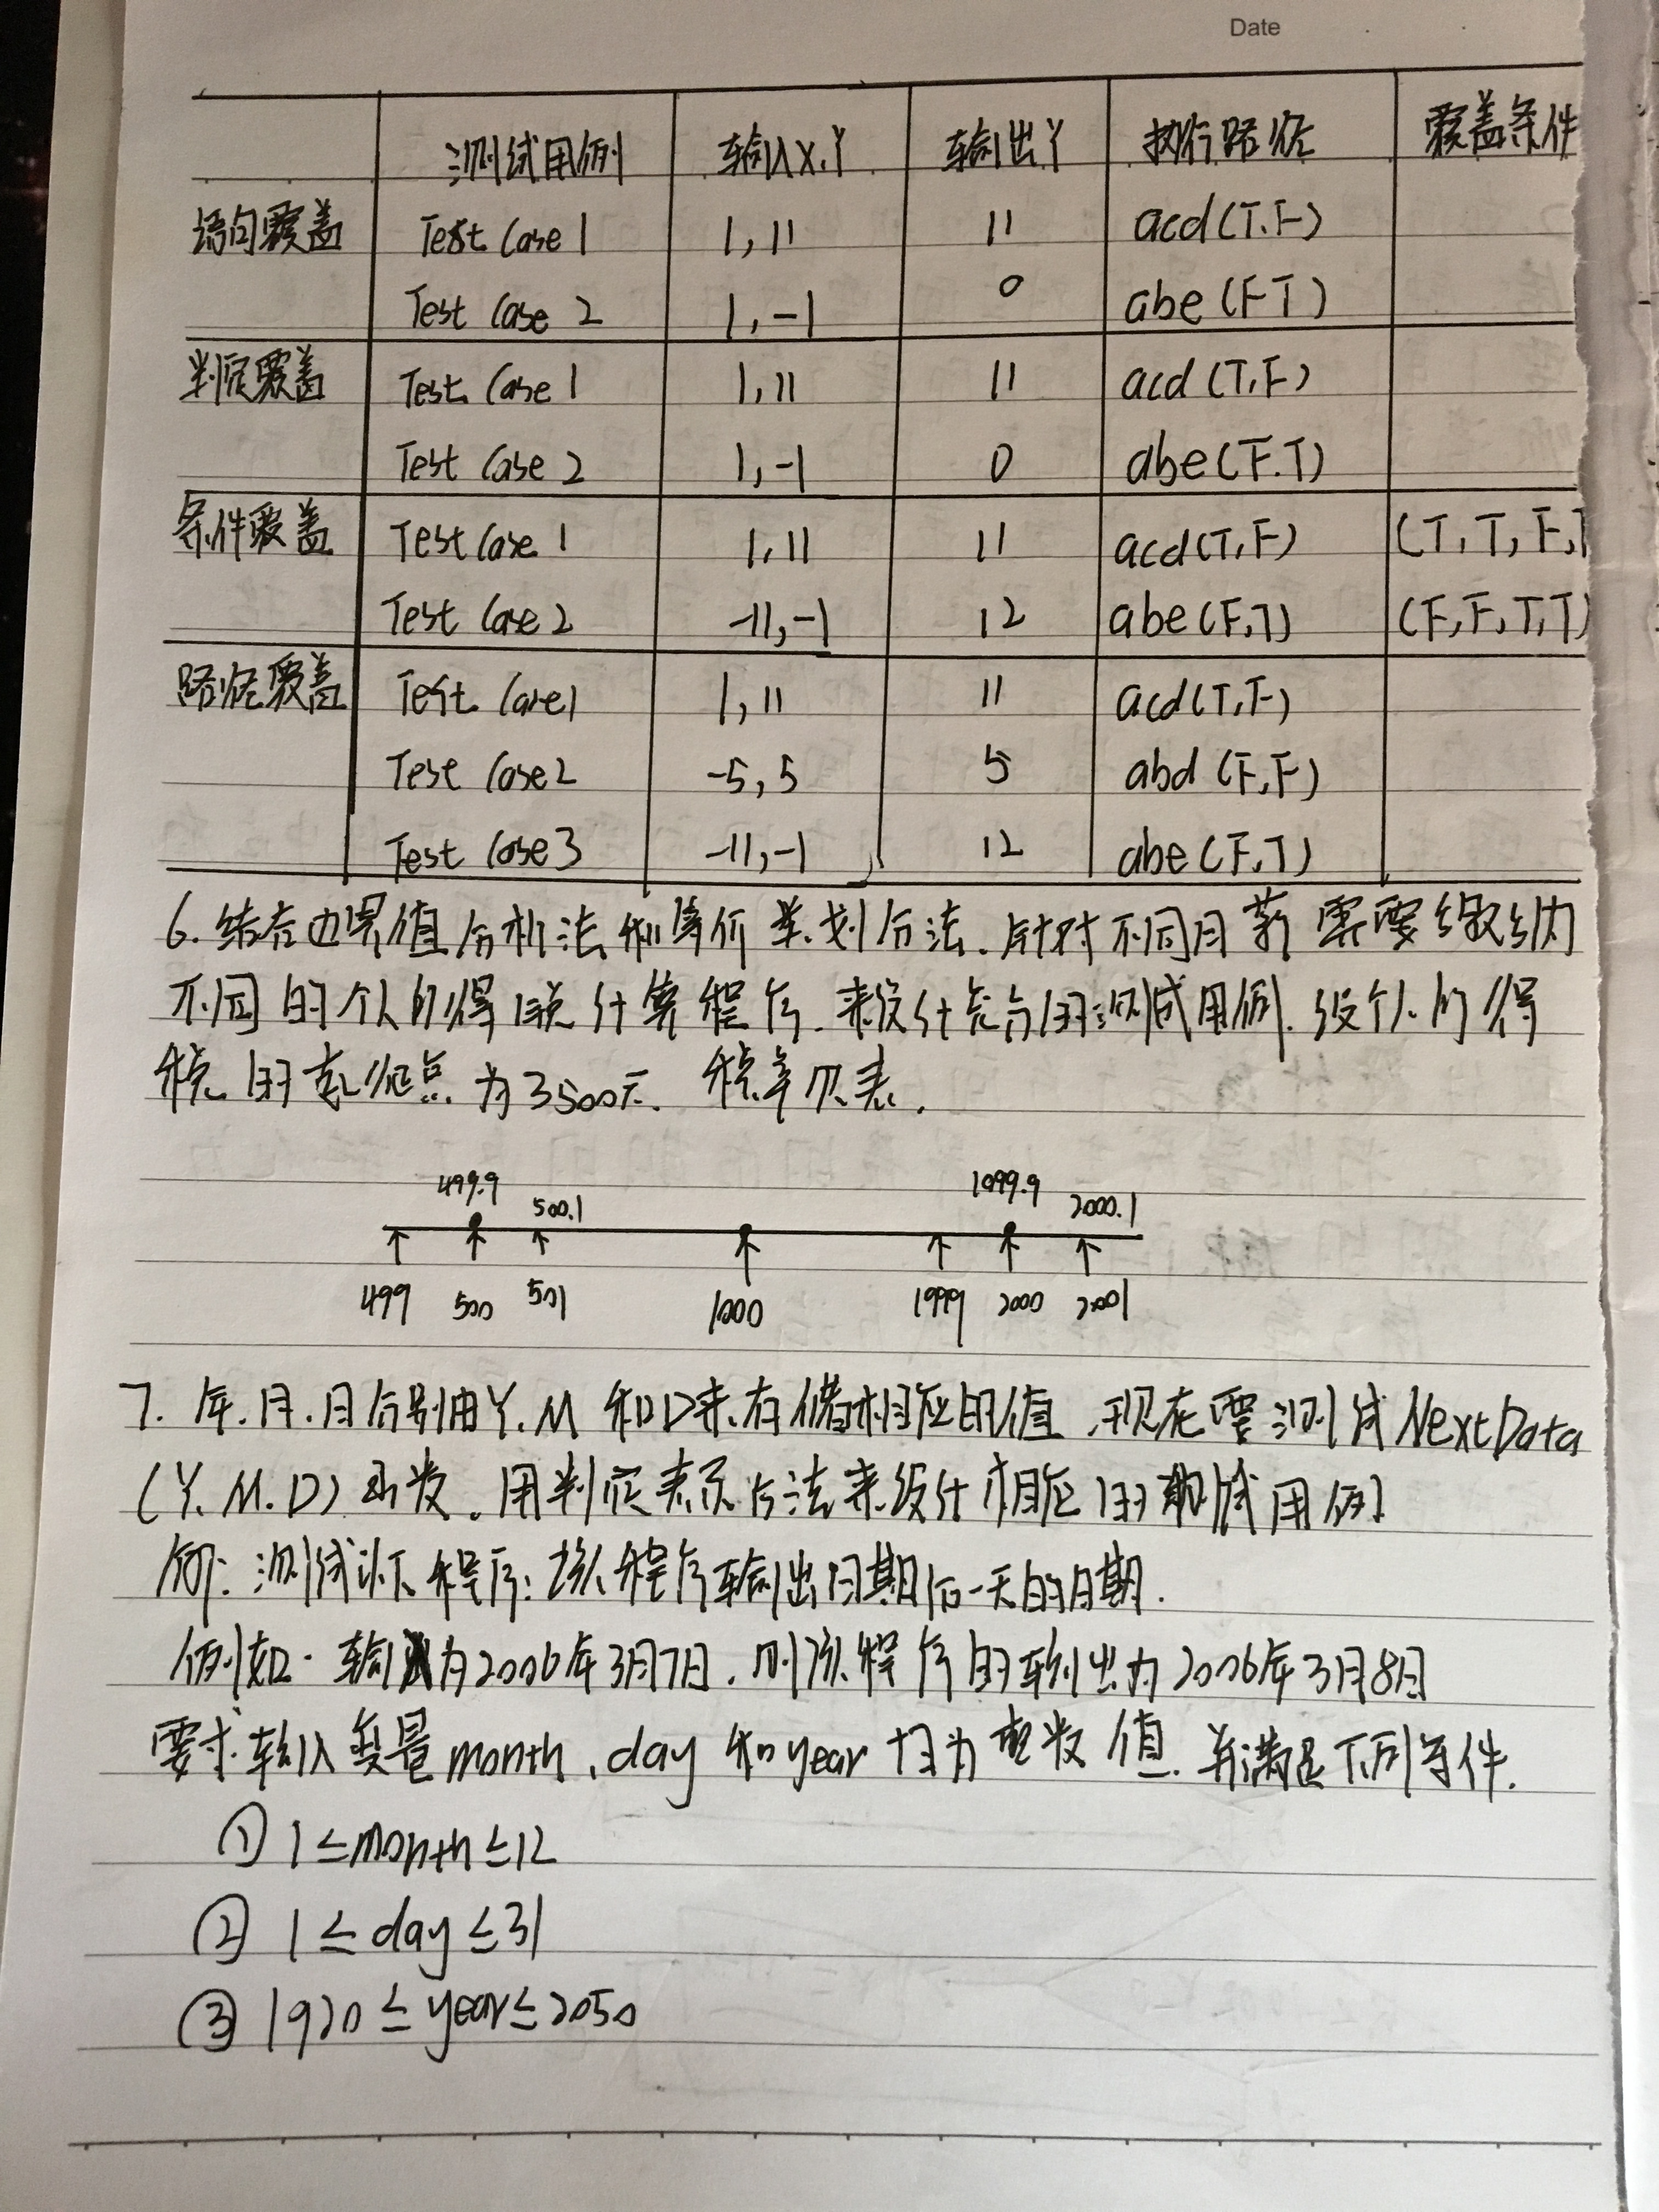 Date
测试用例 输入X,Y 输出Y 执行路径 覆盖条件
语句覆盖 Test Case 1 1,11 11 acd(T.F)
Test Case 2 1,-1 0 abe(FT)
判定覆盖 Test Case 1 1,11 11 acd(T,F)
Test Case 2 1,-1 0 abe(F.T)
条件覆盖 Test Case 1 1,11 11 acd(T,F) (T,T,F,
Test Case 2 -11,-1 12 abe(F,T) (F,F,T,T)
路径覆盖 Test Case1 1,11 11 acd(T,F)
Test Case2 -5,5 5 abd(F,F)
Test Case3 -11,-1 12 abe(F,T)
6.结合边界值分析法和等价类划分法.针对不同月薪需要缴纳
不同的个人所得税计算程序.来设计充分的测试用例.设个人所得
税的起征点为3500元.税率见表.
499.9 500.1 1099.9 2000.1
499 500 501 1000 1999 2000 2001
7.年.月.日分别由Y.M和D来存储相应的值,现在要测试NextData
(Y.M.D)函数.用判定表示方法来设计相应的测试用例
例:测试以下程序:该程序输出日期后一天的日期.
例如.输入为2006年3月7日.则该程序的输出为2006年3月8日
要求.输入变量month,day和year均为整数值.并满足下列条件.
① 1≤month≤12
② 1≤day≤31
③ 1920≤year≤2050